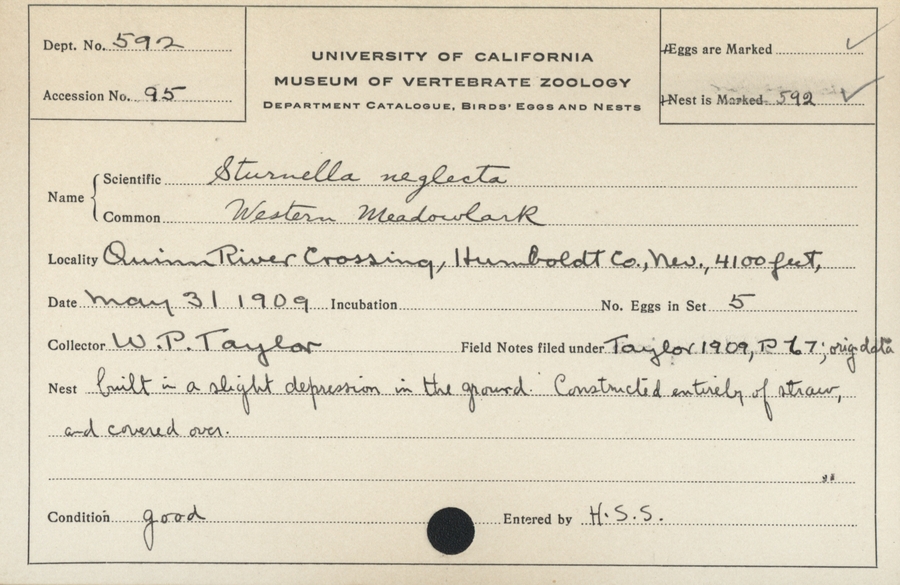 Dept. No. 592
Accession No. 95
UNIVERSITY OF CALIFORNIA
MUSEUM OF VERTEBRATE ZOOLOGY
DEPARTMENT CATALOGUE, BIRDS' EGGS AND NESTS
Eggs are Marked ✓
Nest is Marked 592 ✓
Name
Scientific Sturnella neglecta
Common Western Meadowlark
Locality Quinn River Crossing, Humboldt Co., Nev., 4100 feet,
Date May 31 1909 Incubation No. Eggs in Set 5
Collector W. P. Taylor Field Notes filed under Taylor 1909, P 67; orig data
Nest built in a slight depression in the ground. Constructed entirely of straw,
and covered over.
Condition good Entered by H.S.S.